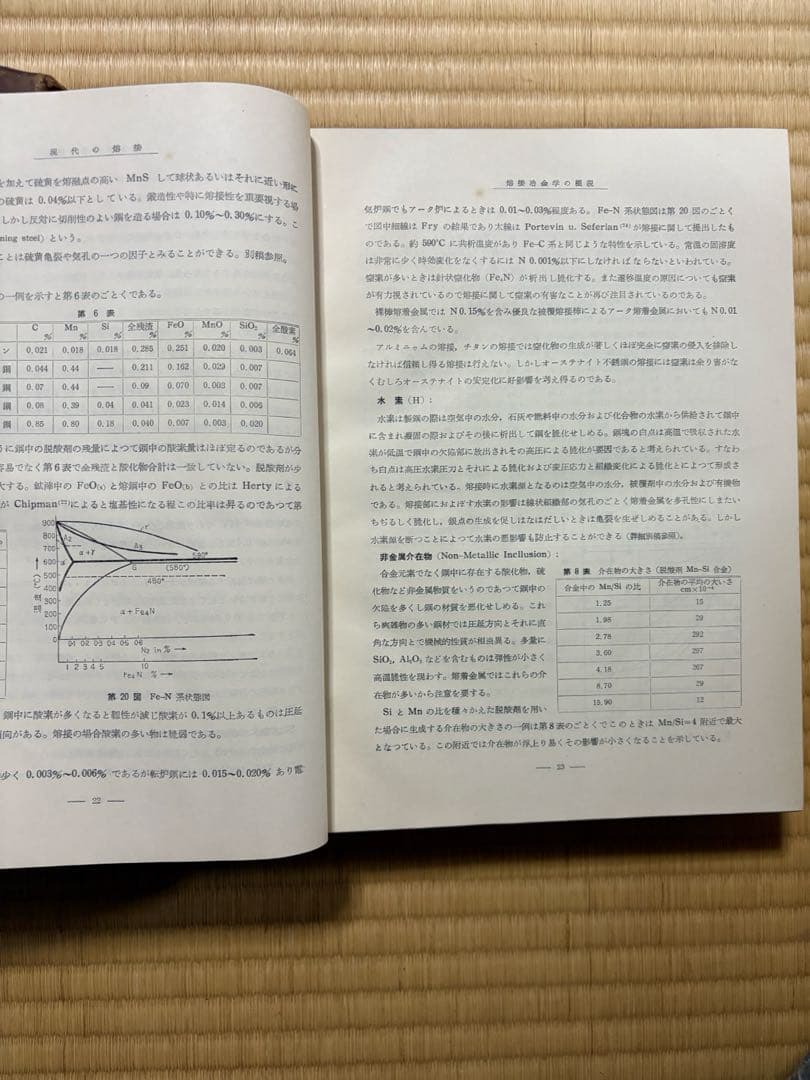 現代の熔接
を加えて硫黄を熔融点の高い MnS して球状あるいはそれに近い形に
の硫黄は 0.04%以下としている。鍛造性や特に熔接性を重要視する場
しかし反対に切削性のよい鋼を造る場合は 0.10%〜0.30%にする。こ
ning steel) という。
ことは硫黄亀裂や気孔の一つの因子とみることができる。別積参照。
の一例を示すと第6表のごとくである。
第 6 表
C % Mn % Si % 全残渣 % FeO % MnO % SiO₂ % 全酸素 %
ン 0.021 0.018 0.018 0.285 0.251 0.020 0.003 0.064
鋼 0.044 0.44 —— 0.211 0.162 0.029 0.007
鋼 0.07 0.44 —— 0.09 0.070 0.003 0.007
鋼 0.08 0.39 0.04 0.041 0.023 0.014 0.006
鋼 0.85 0.80 0.18 0.040 0.007 0.003 0.020
うに鋼中の脱酸剤の残量によつて鋼中の酸素量はほぼ定るのであるが分
容易でなく第6表で全残渣と酸化物合計は一致していない。脱酸剤が少
大する。鉱滓中の FeO(s) と熔鋼中の FeO(b) との比は Herty による
が Chipman⁽²²⁾によると塩基性になる程この比率は昇るのであつて第
900
800
700
600
500
400
300
200
100
0
温度(℃)
A₂
α+γ
A₃
γ
α
G
590°
(580°)
480°
α+Fe₄N
0.1 0.2 0.3 0.4 0.5 0.6
N₂ in %
1 2 3 4 5 10
Fe₄N %
第 20 図 Fe-N 系状態図
鋼中に酸素が多くなると靱性が減じ酸素が 0.1%以上あるものは圧延
傾向がある。熔接の場合酸素の多い物は脆弱である。
少く 0.003%〜0.006% であるが転炉鋼には 0.015〜0.020% あり電
— 22 —
熔接冶金学の概説
気炉鋼でもアーク炉によるときは 0.01〜0.03%程度ある。Fe-N 系状態図は第 20 図のごとく
で図中細線は Fry の結果であり太線は Portevin u. Seferian⁽²⁴⁾が熔接に関して提出したも
のである。約 590℃ に共析温度があり Fe-C 系と同じような特性を示している。常温の固溶度
は非常に少く時効変化をなくするには N 0.001%以下にしなければならないといわれている。
窒素が多いときは針状窒化物 (Fe₄N) が析出し脆化する。また遷移温度の原因についても窒素
が有力視されているので熔接に関して窒素の有害なことが再び注目されているのである。
裸棒熔着金属では N 0.15%を含み優良な被覆熔接棒によるアーク熔着金属においても N 0.01
〜0.02%を含んでいる。
アルミニャムの熔接，チタンの熔接では窒化物の生成が著しくほぼ完全に窒素の侵入を排除し
なければ信頼し得る熔接は行えない。しかしオーステナイト不銹鋼の熔接には窒素は余り害がな
くむしろオーステナイトの安定化に好影響を考え得るのである。
水 素 (H) :
水素は製鋼の際は空気中の水分，石灰や燃料中の水分および化合物の水素から供給されて鋼中
に含まれ凝固の際およびその後に析出して鋼を脆化せしめる。鋼塊の白点は高温で吸収された水
素が低温で鋼中の欠陥部に放出されその高圧による脆化が要因であると考えられている。すなわ
ち白点は高圧水素圧力とそれによる脆化および変圧応力と組織変化による脆化とによつて形成さ
れると考えられている。熔接時に水素源となるのは空気中の水分，被覆剤中の水分および有機物
である。熔接部におよぼす水素の影響は線状組織部の気孔のごとく熔着金属を多孔性にしまたい
ちぢるしく脆化し，銀点の生成を促しはなはだしいときは亀裂を生ぜしめることがある。しかし
水素源を断つことによつて水素の悪影響も防止することができる（詳細別積参照）。
非金属介在物 (Non-Metallic Incllusion) :
合金元素でなく鋼中に存在する酸化物，硫
化物など非金属物質をいうのであつて鋼中の
欠陥を多くし鋼の材質を悪化せしめる。これ
ら夾雑物の多い鋼材では圧延方向とそれに直
角な方向とで機械的性質が相当異る。多量に
SiO₂, Al₂O₃ などを含むものは弾性が小さく
高温脆性を現わす。熔着金属ではこれらの介
在物が多いから注意を要する。
Si と Mn の比を種々かえた脱酸剤を用い
第 8 表 介在物の大きさ (脱酸剤 Mn-Si 合金)
合金中の Mn/Si の比 介在物の平均の大いさ cm×10⁻⁴
1.25 15
1.98 29
2.78 292
3.60 297
4.18 367
8.70 29
15.90 12
た場合に生成する介在物の大きさの一例は第8表のごとくでこのときは Mn/Si=4 附近で最大
となつている。この附近では介在物が浮上り易くその影響が小さくなることを示している。
— 23 —